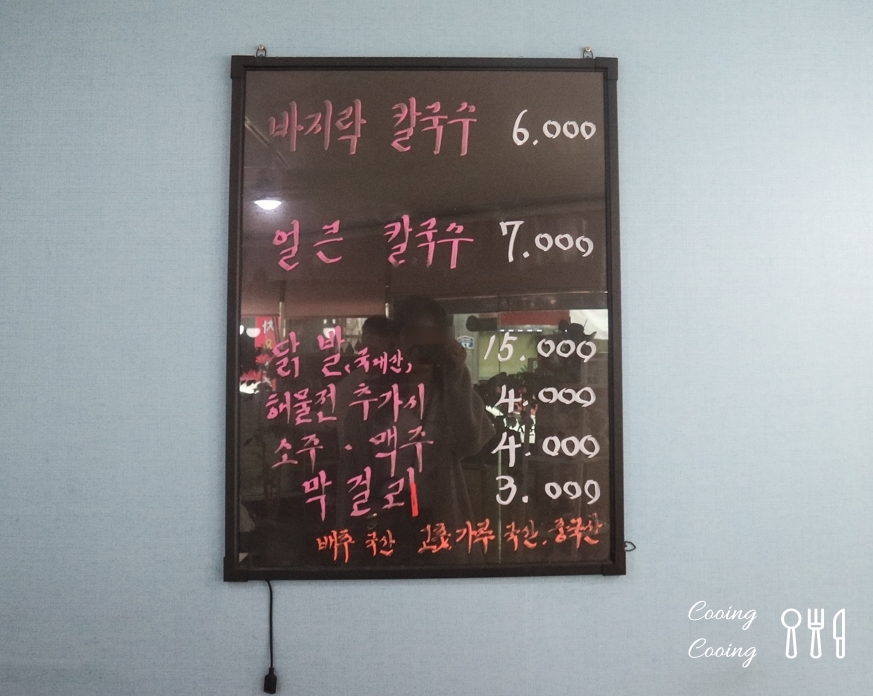 바지락 칼국수 6.000
얼큰 칼국수 7.000
닭발(국내산) 15.000
해물전 추가시 4.000
소주 · 맥주 4.000
막걸리 3.000
배추 국산 고추가루 국산.중국산
Cooing
Cooing